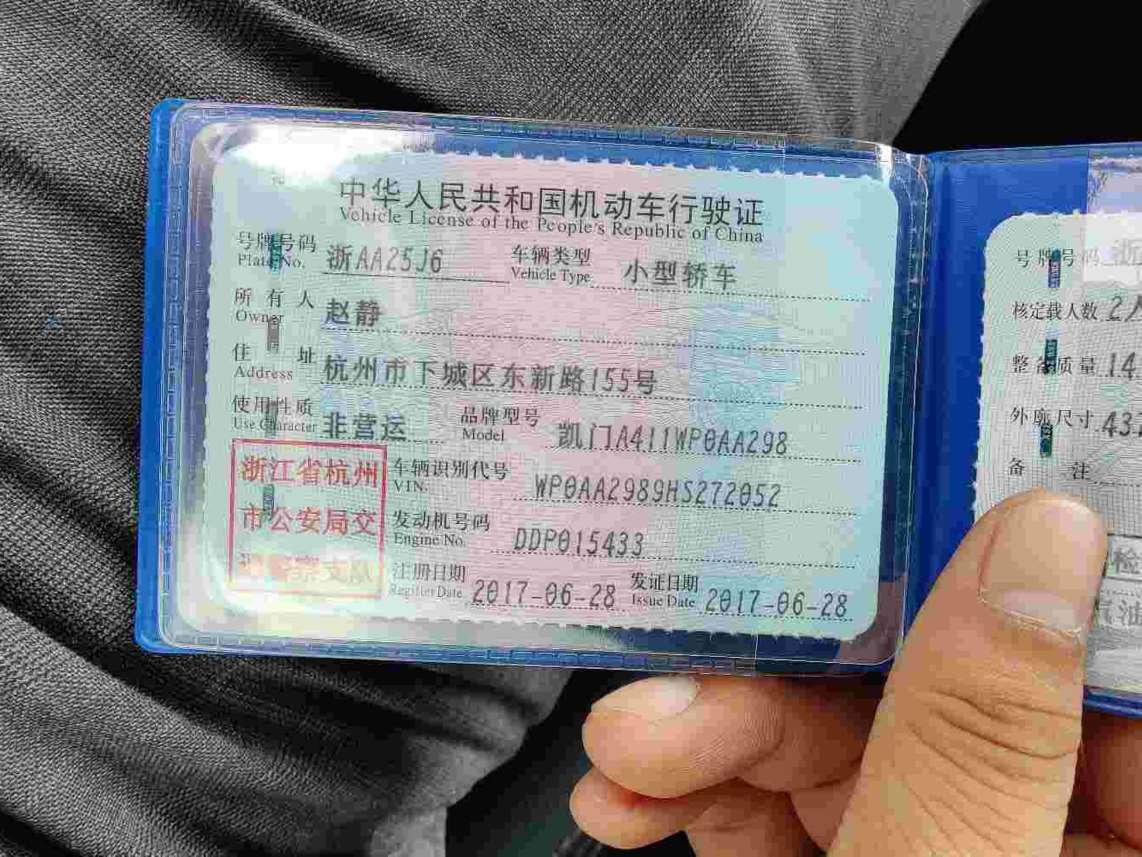 中华人民共和国机动车行驶证
Vehicle License of the People's Republic of China
号牌号码 浙AA25J6 车辆类型 小型轿车
Plate No. Vehicle Type
所有人 赵静
Owner
住址 杭州市下城区东新路155号
Address
使用性质 非营运 品牌型号 凯门A411WP0AA298
Use Character Model
浙江省杭州
市公安局交
车辆识别代号 WP0AA2989HS272052
VIN.
发动机号码 DDP015433
Engine No.
注册日期 2017-06-28 发证日期 2017-06-28
Register Date Issue Date
号牌号码 浙
核定载人数 2人
整备质量 14
外廓尺寸 43
备注
检
汽油